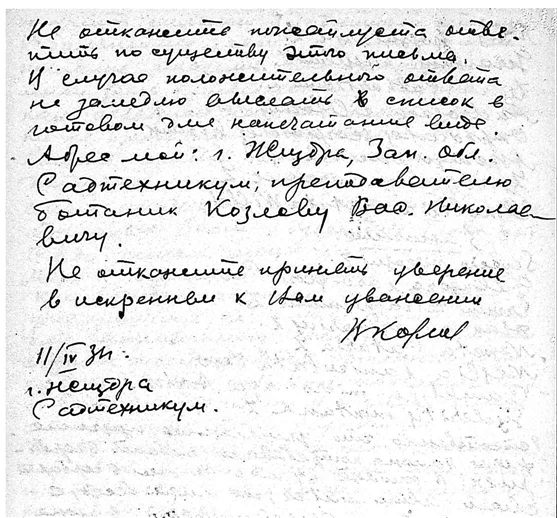 Не откажите пожалуйста отве-
тить по существу этого письма.
В случае положительного ответа
не замедлю выслать в список в
готовом для напечатания виде.
Адрес мой: г. Зап. обл.
Садтехникум, преподавателю
ботаник Козлову Николае-
вичу.
Не откажите принять уверение
в искреннем к Вам уважении
ВКозлов
11/IV 31г.
г.
Садтехникум.